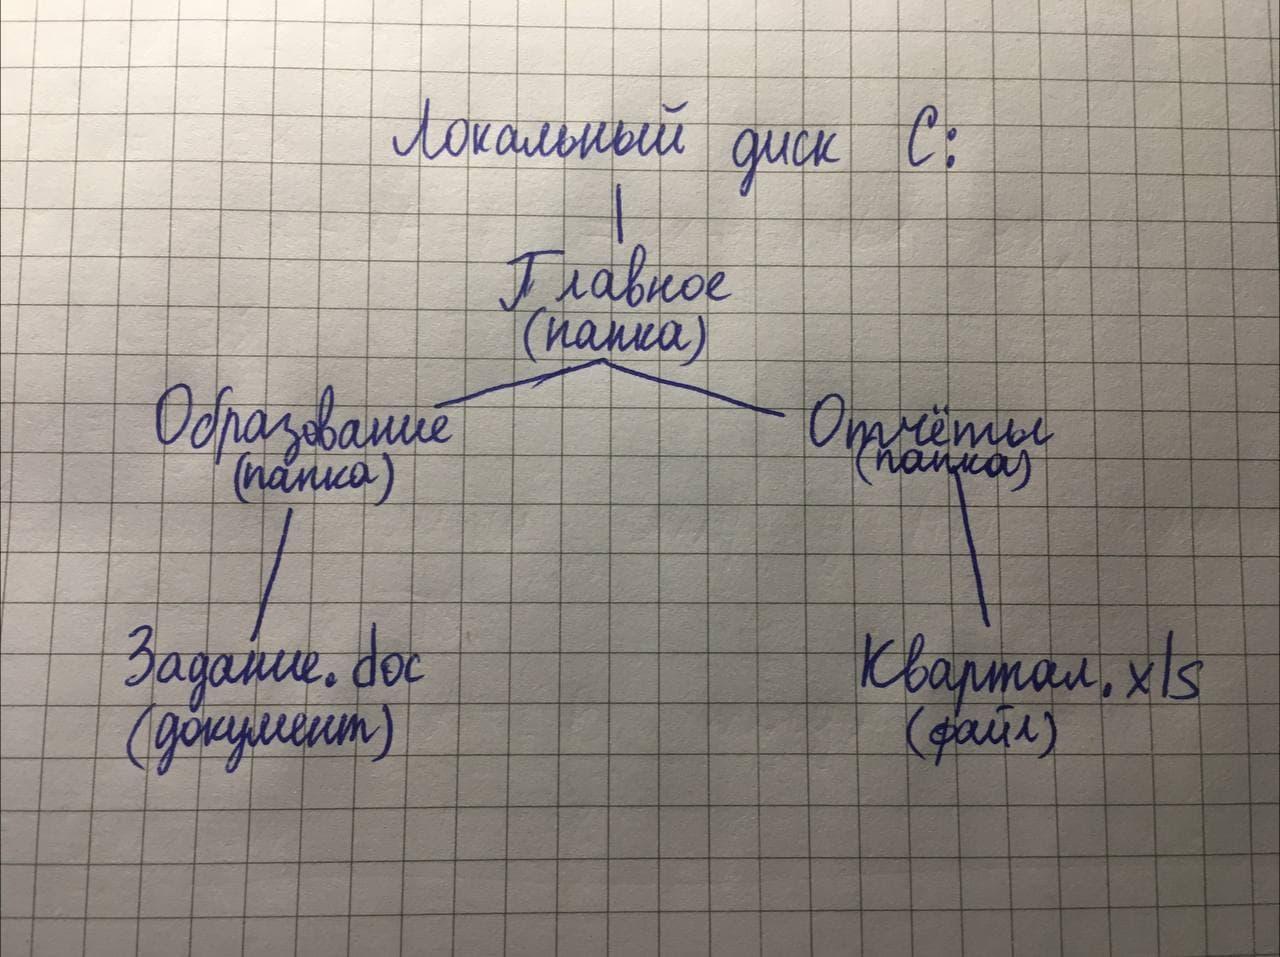 Локальный диск C:
Главное
(папка)
Образование
(папка)
Отчёты
(папка)
Задание.doc
(документ)
Квартал.xls
(файл)